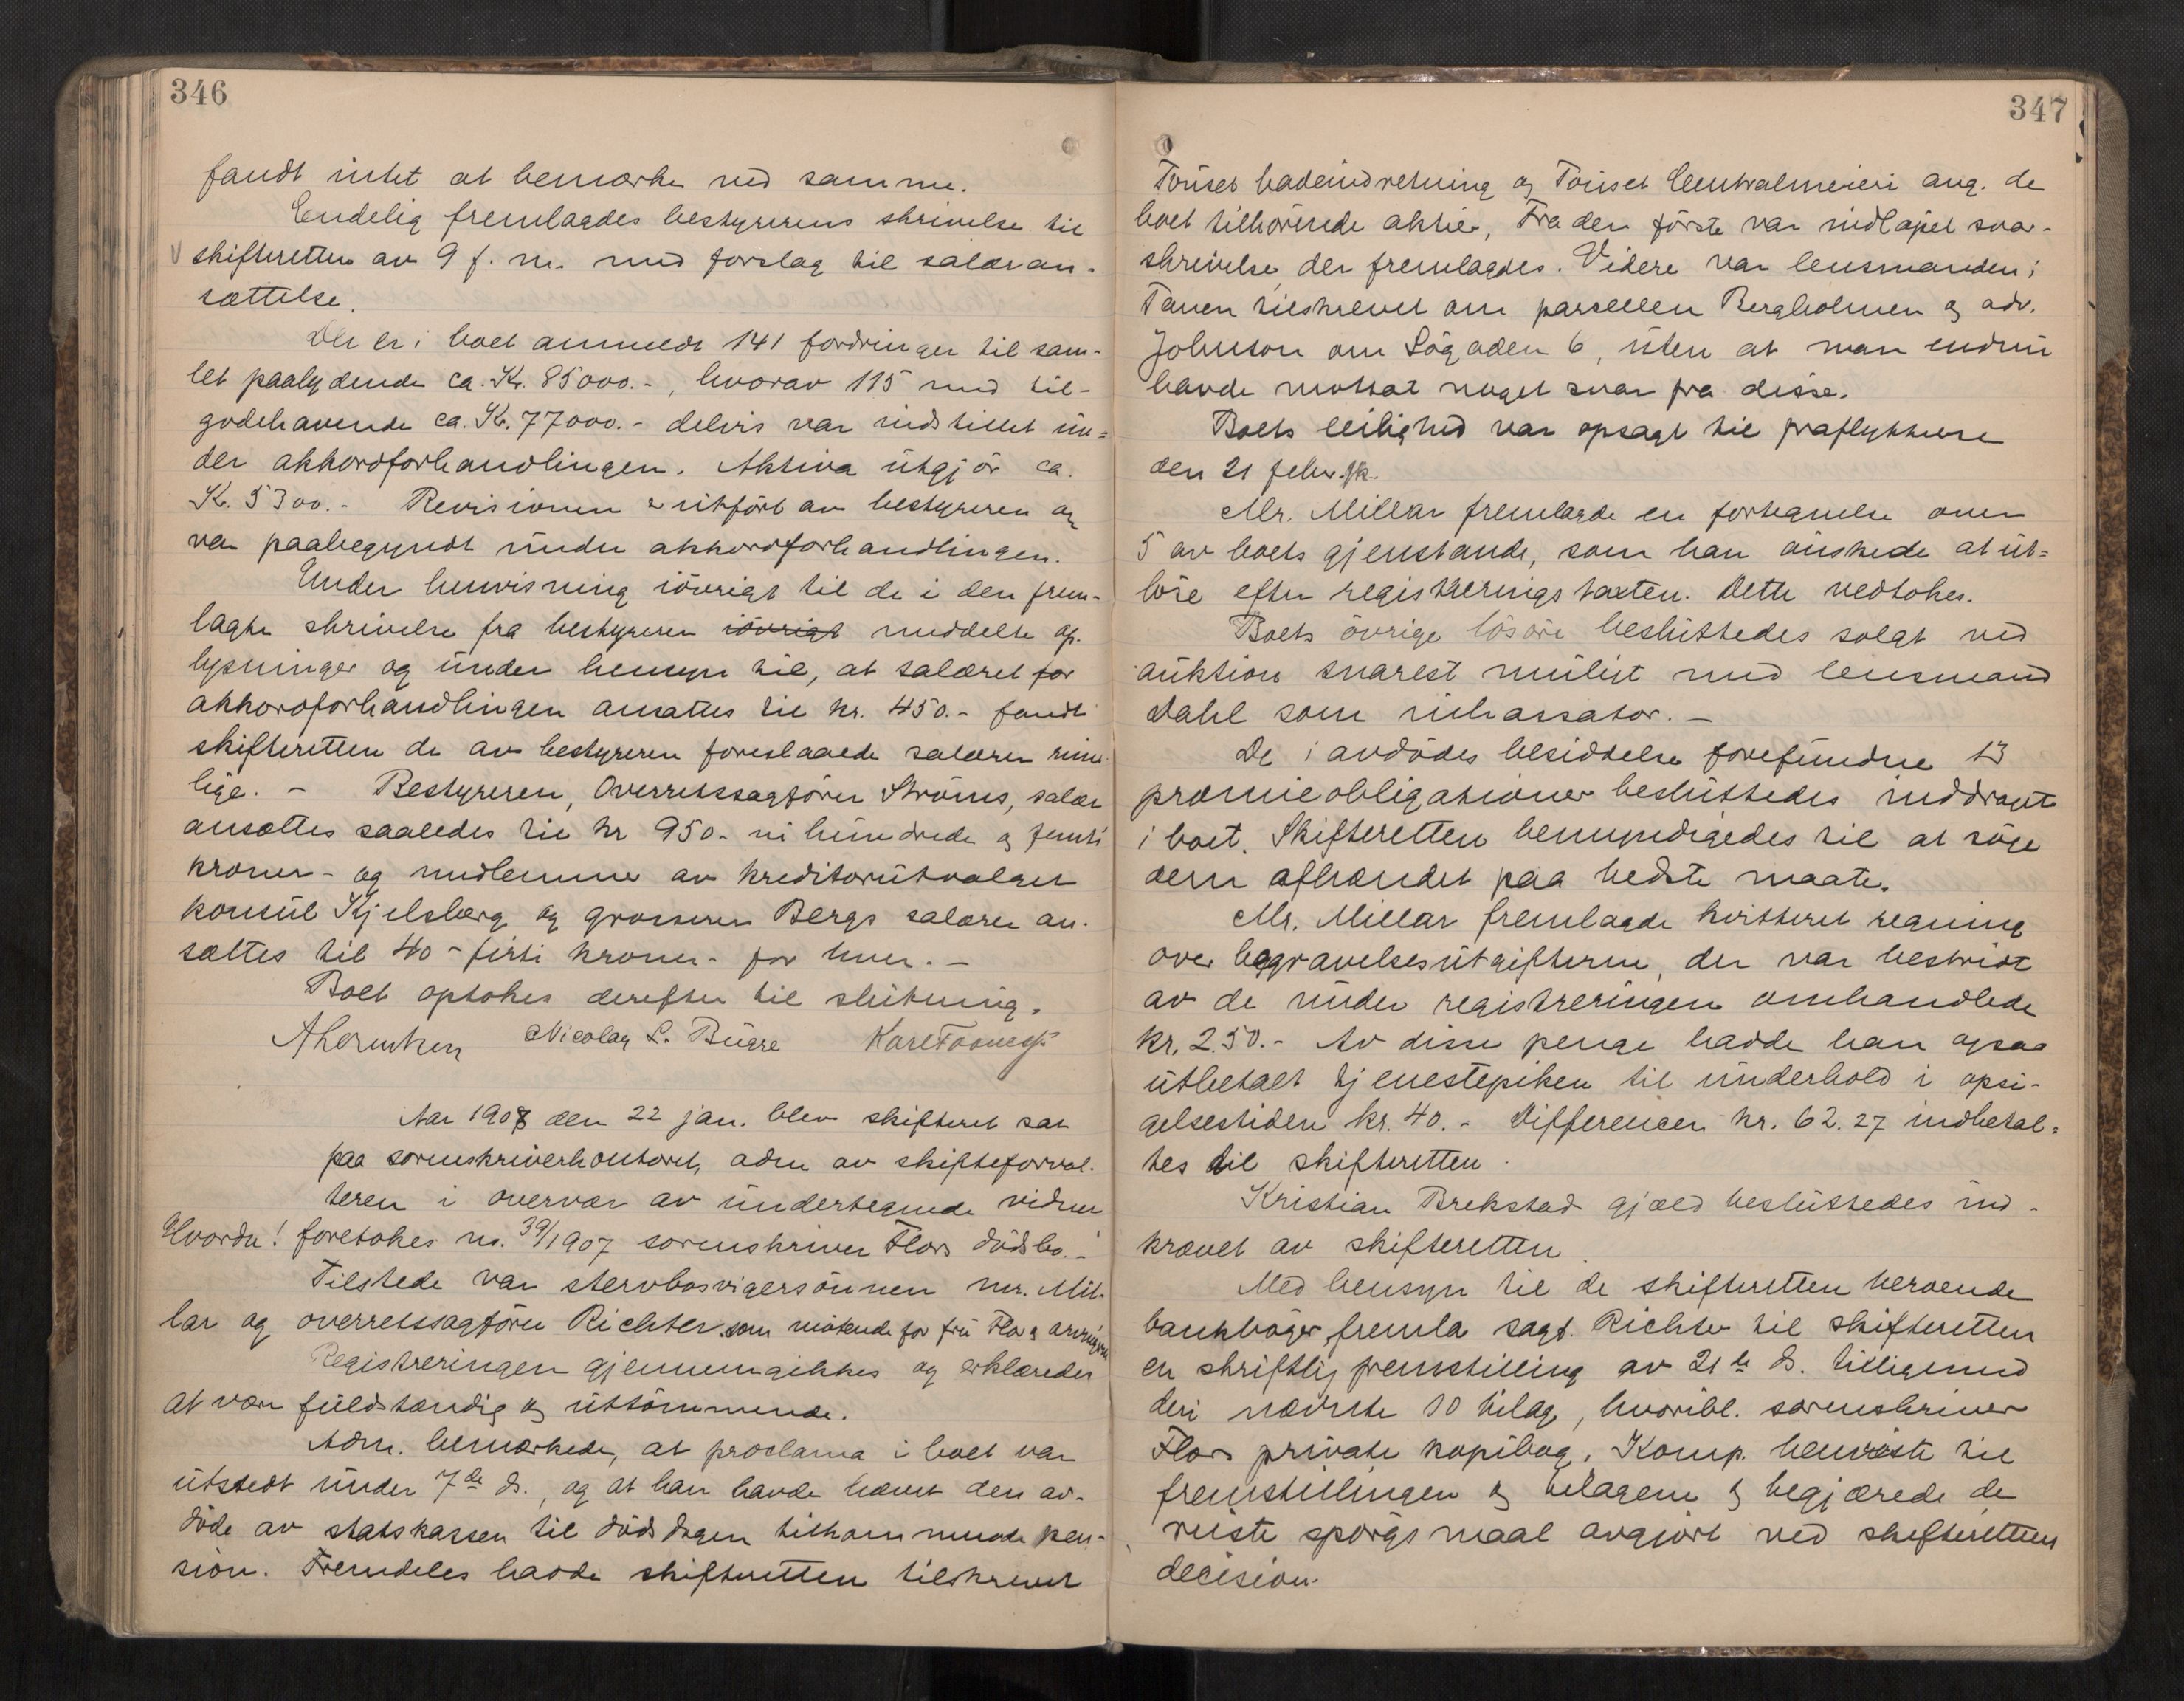 346
fandt intet at bemærke ved samme.
Endelig fremlagdes bestyrerens skrivelse til
skifteretten av 9 f. m. med forslag til salæran-
sættelse.
Der er i boet anmeldt 141 fordringer til sam-
let paalydende ca. Kr. 85000.-, hvorav 115 med til-
godehavende ca. Kr. 77000.- delvis var indstillet un-
der akkordforhandlingen. Aktiva utgjør ca.
Kr. 5300.- Revisionen er utført av bestyreren og
var paabegyndt under akkordforhandlingen.
Under henvisning iøvrigt til de i den frem-
lagte skrivelse fra bestyreren iøvrigt meddelte op-
lysninger og under hensyn til, at salæret for
akkordforhandlingen ansattes til kr. 450.- fandt
skifteretten de av bestyreren foreslaaede salærer rime-
lige. - Bestyreren, Overretssagfører Strøms, salær
ansættes saaledes til kr 950- ni hundrede og femti
kroner- og medlemmene av kreditorutvalget
konsul Kjelsberg og grosserer Bergs salærer an-
sættes til 40 - firti kroner - for hver. -
Boet optokes derefter til slutning.
Nicolay L. Bugge
Aar 1908 den 22 jan. blev skifteret sat
paa sorenskriverkontoret, adm av skifteforval-
teren i overvær av undertegnede vidner
Hvorda! foretokes no. 39/1907 sorenskriver Flors dødsbo.-
Tilstede var stervbosvigersønnen mr. Mil-
lar og overretssagfører Richter som møtende for fru Flor &
Registreringen gjennemgikkes og erklæredes
at være fuldstændig og uttømmende.
Adm. bemærkede, at proclama i boet var
utstedt under 7de ds., og at han havde hævet den av-
døde av statskassen til dødsdagen tilkommende pen-
sion. Fremdeles havde skifteretten tilskrevet
347
Touset badeindretning og Touset Centralmeieri ang. de
boet tilhørende aktier, Fra den første var indløpet svar-
skrivelse, der fremlagdes. Videre var lensmanden i
Tanen tilskrevet om parsellen Bergholmen og adv.
Johnson om Søgaden 6, uten at man endnu
havde mottat noget svar fra disse.
Boets leilighed var opsagt til fraflyttelse
den 21 febr.
Mr. Millar fremlagde en fortegnelse over
5 av boets gjenstande, som han ønskede at ut-
løse efter registreringstaxten. Dette vedtokes.
Boets øvrige løsøre besluttedes solgt ved
auktion snarest muligt med lensmand
Dahl som inkassator. -
De i avdødes besiddelse forefundne 13
præmieobligationer besluttedes inddragt
i boet. Skifteretten bemyndigedes til at søge
dem afhændet paa bedste maate.
Mr. Millar fremlagde kvitteret regning
over begravelsesutgifterne, der var bestridt
av de under registreringen omhandlede
kr. 250.- Av disse penge hadde han ogsaa
utbetalt tjenestepiken til underhold i opsi-
gelsestiden kr. 40.- Differencen kr. 62.27 indbetal-
tes til skifteretten.
Kristian Brekstad gjæld besluttedes ind-
krævet av skifteretten.
Med hensyn til de skifteretten beroende
bankbøger, fremla sagf. Richter til skifteretten
en skriftlig fremstilling av 21de ds. tilligemed
deri nævnte 10 bilag, hvoribl. sorenskriver
Flors private kopibog. Komp. henviste til
fremstillingen og bilagene og begjærede de
reiste spørgsmaal avgjort ved skifterettens
decision.